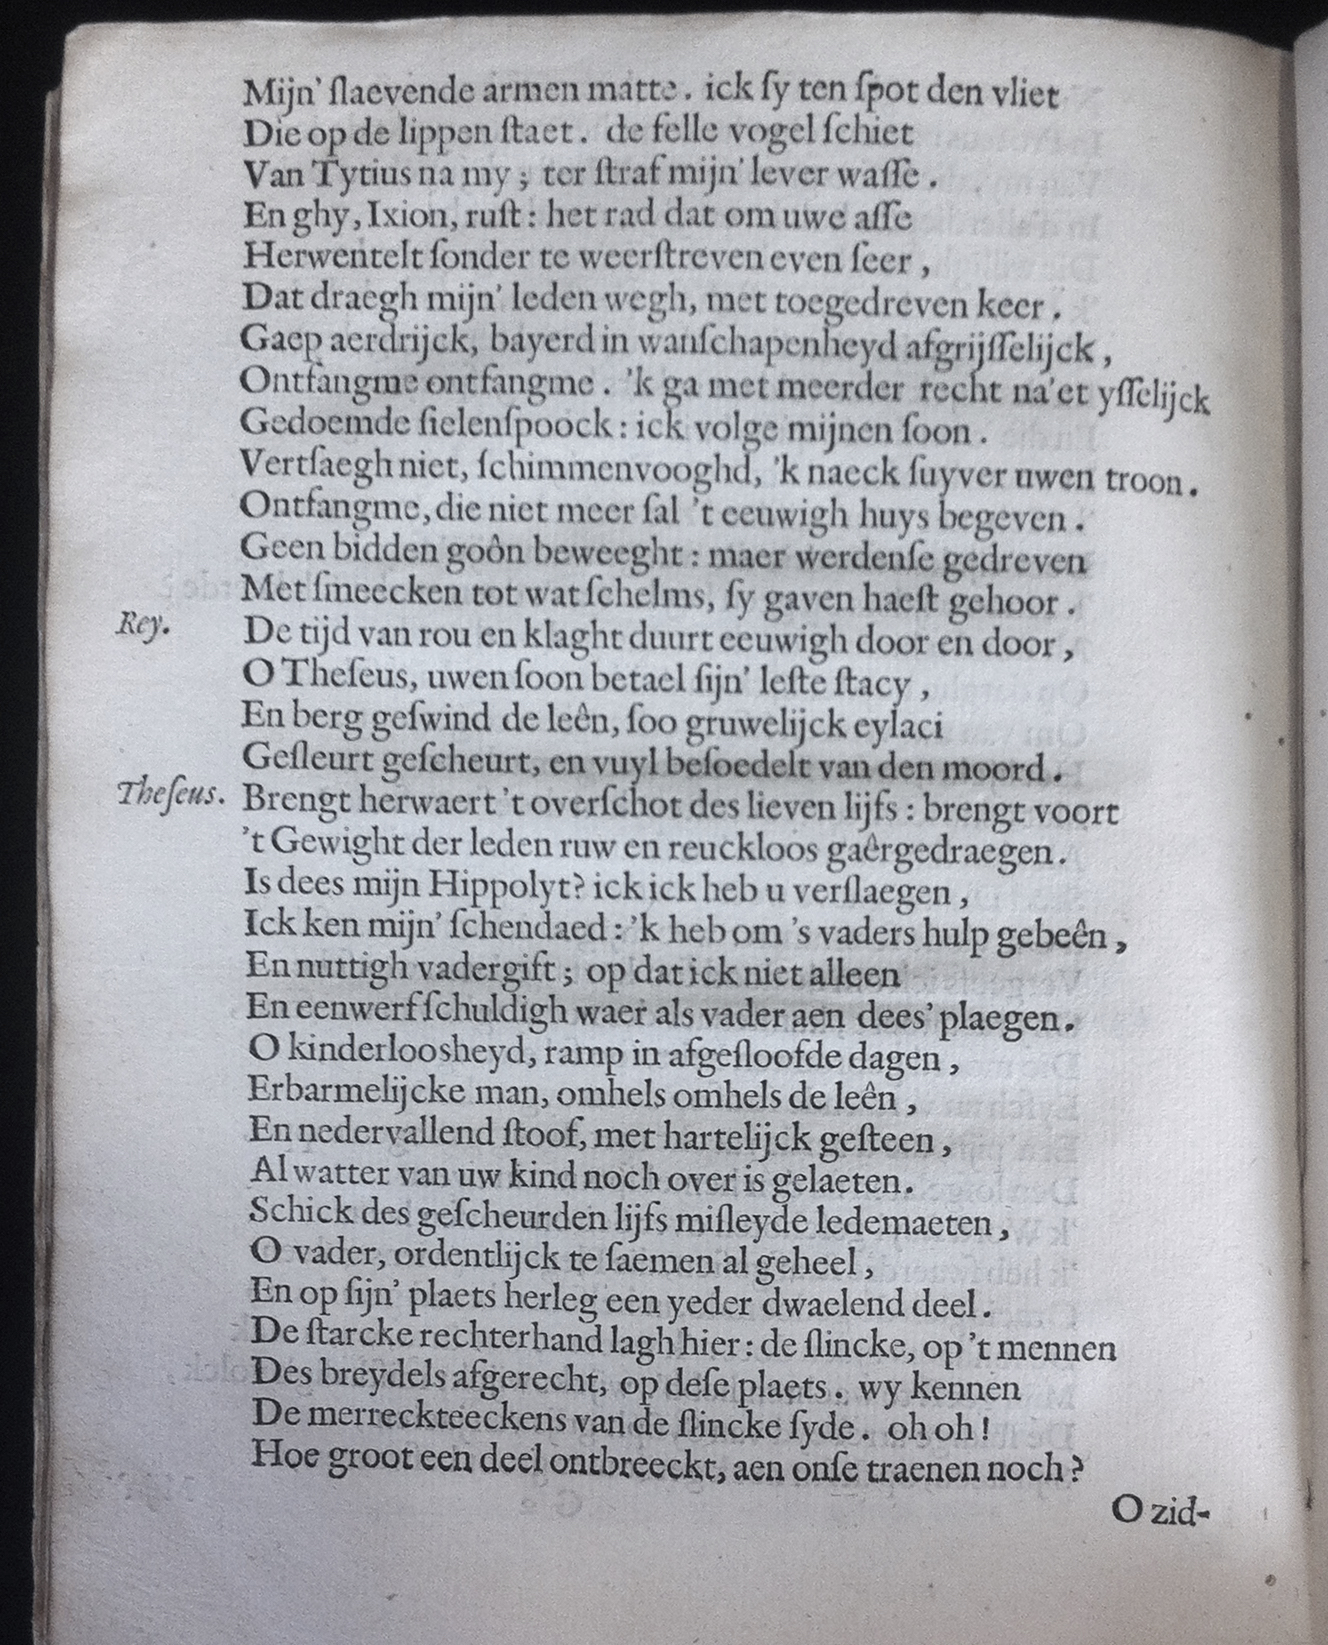 Mijn' ſlaevende armen matte. ick ſy ten ſpot den vliet
Die op de lippen ſtaet. de felle vogel ſchiet
Van Tytius na my; ter ſtraf mijn' lever waſſe.
En ghy, Ixion, ruſt: het rad dat om uwe aſſe
Herwentelt ſonder te weerſtreven even ſeer,
Dat draegh mijn' leden wegh, met toegedreven keer.
Gaep aerdrijck, bayerd in wanſchapenheyd afgrijſſelijck,
Ontfangme ontfangme. 'k ga met meerder recht na'et yſſelijck
Gedoemde ſielenſpoock: ick volge mijnen ſoon.
Vertſaegh niet, ſchimmenvooghd, 'k naeck ſuyver uwen troon.
Ontfangme, die niet meer ſal 't eeuwigh huys begeven.
Geen bidden goôn beweeght: maer werdenſe gedreven
Met ſmeecken tot wat ſchelms, ſy gaven haeſt gehoor.
Rey. De tijd van rou en klaght duurt eeuwigh door en door,
O Theſeus, uwen ſoon betael ſijn' leſte ſtacy,
En berg geſwind de leên, ſoo gruwelijck eylaci
Geſleurt geſcheurt, en vuyl beſoedelt van den moord.
Theſeus. Brengt herwaert 't overſchot des lieven lijfs: brengt voort
't Gewight der leden ruw en reuckloos gaêrgedraegen.
Is dees mijn Hippolyt? ick ick heb u verſlaegen,
Ick ken mijn' ſchendaed: 'k heb om 's vaders hulp gebeên,
En nuttigh vadergift; op dat ick niet alleen
En eenwerf ſchuldigh waer als vader aen dees' plaegen.
O kinderloosheyd, ramp in afgeſloofde dagen,
Erbarmelijcke man, omhels omhels de leên,
En nedervallend ſtoof, met hartelijck geſteen,
Al watter van uw kind noch over is gelaeten.
Schick des geſcheurden lijfs miſleyde ledemaeten,
O vader, ordentlijck te ſaemen al geheel,
En op ſijn' plaets herleg een yeder dwaelend deel.
De ſtarcke rechterhand lagh hier: de ſlincke, op 't mennen
Des breydels afgerecht, op deſe plaets. wy kennen
De merreckteeckens van de ſlincke ſyde. oh oh!
Hoe groot een deel ontbreeckt, aen onſe traenen noch?
O zid-